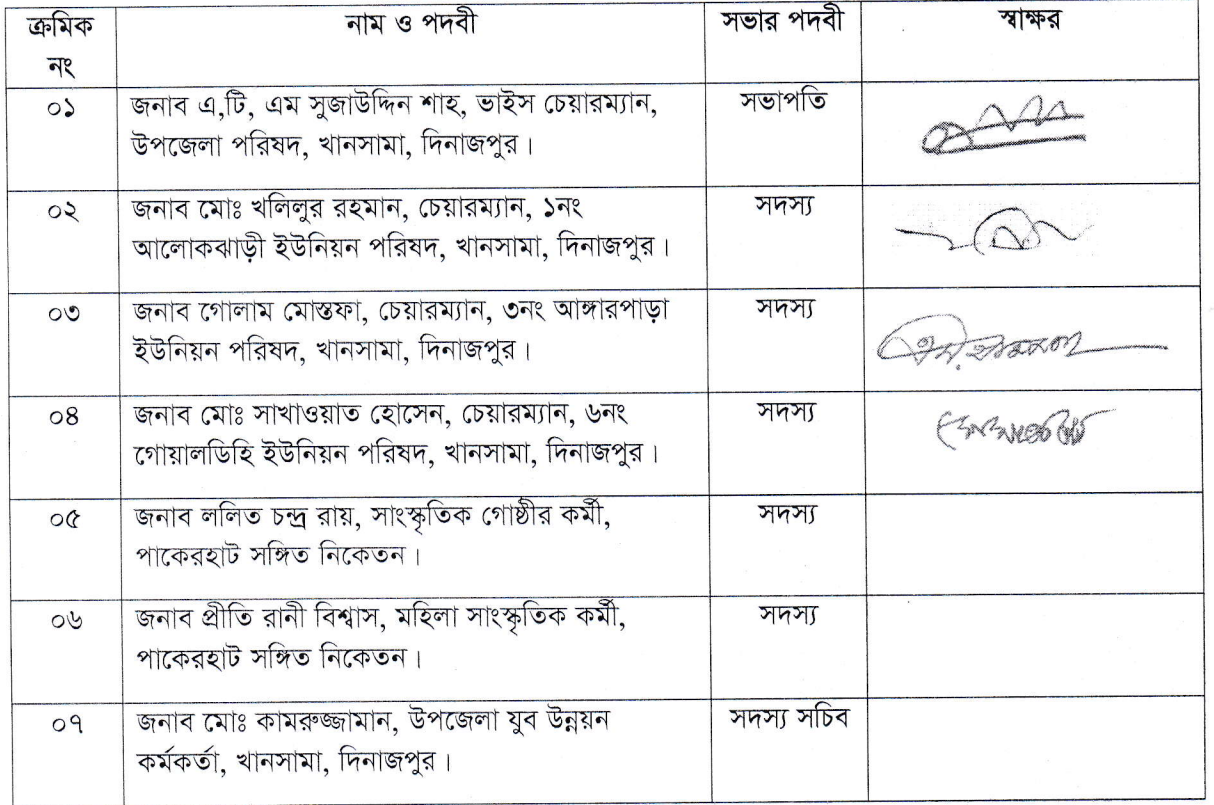 ক্রমিক নং নাম ও পদবী সভার পদবী স্বাক্ষর
০১ জনাব এ,টি, এম সুজাউদ্দিন শাহ, ভাইস চেয়ারম্যান, সভাপতি
উপজেলা পরিষদ, খানসামা, দিনাজপুর।
০২ জনাব মোঃ খলিলুর রহমান, চেয়ারম্যান, ১নং সদস্য
আলোকঝাড়ী ইউনিয়ন পরিষদ, খানসামা, দিনাজপুর।
০৩ জনাব গোলাম মোস্তফা, চেয়ারম্যান, ৩নং আঙ্গারপাড়া সদস্য
ইউনিয়ন পরিষদ, খানসামা, দিনাজপুর।
০৪ জনাব মোঃ সাখাওয়াত হোসেন, চেয়ারম্যান, ৬নং সদস্য
গোয়ালডিহি ইউনিয়ন পরিষদ, খানসামা, দিনাজপুর।
০৫ জনাব ললিত চন্দ্র রায়, সাংস্কৃতিক গোষ্ঠীর কর্মী, সদস্য
পাকেরহাট সঙ্গিত নিকেতন।
০৬ জনাব প্রীতি রানী বিশ্বাস, মহিলা সাংস্কৃতিক কর্মী, সদস্য
পাকেরহাট সঙ্গিত নিকেতন।
০৭ জনাব মোঃ কামরুজ্জামান, উপজেলা যুব উন্নয়ন সদস্য সচিব
কর্মকর্তা, খানসামা, দিনাজপুর।